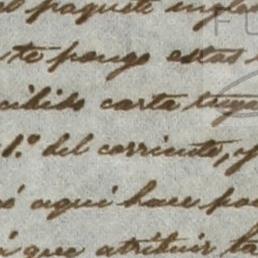 al paquete ingles
te pongo estas
cibido carta tuya
1.º del corriente, y
ó aqui hace po
á que atribuir ta